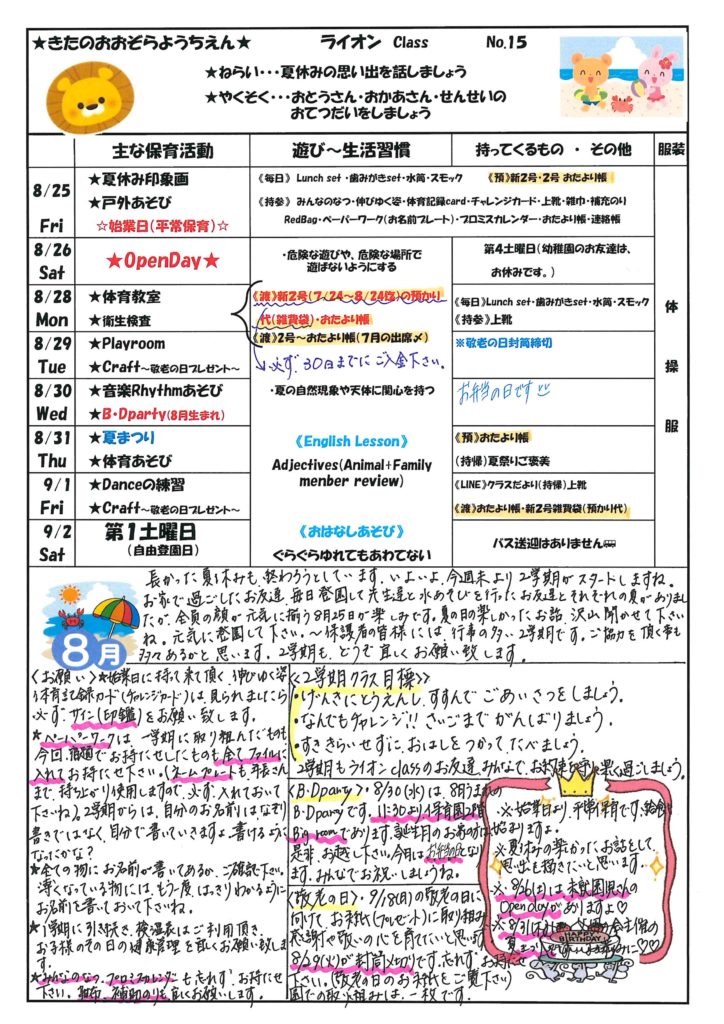 ★きたのおおぞらようちえん★ ライオン Class No.15
★ねらい・・・夏休みの思い出を話しましょう
★やくそく・・・おとうさん・おかあさん・せんせいの
おてつだいをしましょう
主な保育活動 遊び～生活習慣 持ってくるもの ・ その他 服装
8/25 Fri
★夏休み印象画
★戸外あそび
☆始業日(平常保育)☆
《毎日》 Lunch set ・歯みがきset・水筒・スモック 《預》新2号・2号 おたより帳
《持参》 みんなのなつ・伸びゆく姿・体育記録card・チャレンジカード・上靴・雑巾・補充のり
RedBag・ペーパーワーク(お名前プレート)・プロミスカレンダー・おたより帳・連絡帳
8/26 Sat
★OpenDay★
・危険な遊びや、危険な場所で
遊ばないようにする
第4土曜日(幼稚園のお友達は、
お休みです。)
8/28 Mon
★体育教室
★衛生検査
《渡》新2号(7/24～8/24迄)の預かり
代(雑貨袋)・おたより帳
《渡》2号～おたより帳(7月の出席〆)
↳必ず、30日までにご入金下さい。
《毎日》Lunch set・歯みがきset・水筒・スモック
《持参》上靴
体操服
8/29 Tue
★Playroom
★Craft～敬老の日プレゼント～
※敬老の日封筒締切
8/30 Wed
★音楽Rhythmあそび
★B・Dparty(8月生まれ)
・夏の自然現象や天体に関心を持つ
お弁当の日です
8/31 Thu
★夏まつり
★体育あそび
《English Lesson》
Adjectives(Animal+Family
menber review)
《預》おたより帳
(持帰)夏祭りご褒美
9/1 Fri
★Danceの練習
★Craft～敬老の日プレゼント～
《LINE》クラスだより(持帰)上靴
《渡》おたより帳・新2号雑貨袋(預かり代)
9/2 Sat
第1土曜日
(自由登園日)
《おはなしあそび》
ぐらぐらゆれてもあわてない
バス送迎はありません
8月
長かった夏休みも、終わろうとしています。いよいよ、今週末より2学期がスタートしますね。
お家で過ごしたお友達、毎日登園して先生達と水あそびを行ったお友達とそれぞれの夏がありまし
たが、全員の顔が元気に揃う8月25日が楽しみです。夏の日の楽しかったお話、沢山聞かせて下さい
ね。元気に登園して下さい。～保護者の皆様には、行事の多い2学期です。ご協力を頂く事も
多々あるかと思います。2学期も、どうぞ宜しくお願い致します。
〈お願い〉★始業日に持って来て頂く、伸びゆく姿
体育記録カード(チャレンジカード)は、見られましたら
必ず、サイン(印鑑)をお願い致します。
★ペーパーワークは、一学期に取り組んだものも
今回、宿題でお持たせしたものも全てファイルに
入れてお持たせ下さい。(ネームプレートも年長さん
まで、持ち上がり使用しますので、必ず、入れておいて
下さいね)。2学期からは、自分のお名前はなぞり
書きではなく、自分で書いていきますよ。書けるように
なったかな?
★全ての物にお名前が書いてあるか、ご確認下さい。
薄くなっている物には、もう一度、はっきりわかるように
お名前を書いておいて下さいね。
★1学期に引き続き、検温表はご利用頂き、
お子様のその日の健康管理を宜しくお願い致しま
す。
★みんなのなつ、プロミスカレンダーも忘れず、お持たせ
下さい。雑巾、補助のりも宜しくお願いします。
〈2学期クラス目標〉
・げんきにとうえんし、すすんで ごあいさつをしましょう。
・なんでもチャレンジ!! さいごまで がんばりましょう。
・すききらいせずに、おはしをつかって、たべましょう。
2学期もライオンclassのお友達、みんなで、お約束を守り楽しく過ごしましょう。
〈B・Dparty〉 8/30(水)は、8月うまれの
B・Dpartyです。11:30より保育園2階
Big roomであります。誕生月のお家の方は
是非、お越し下さい。今月はお弁当の日となり
ます。みんなでお祝いしましょうね。
〈敬老の日〉 9/18(月)の敬老の日に
向けて、お手紙(プレゼント)に取り組み
感謝や敬いの心を育てたいと思います。
8/29(火)が封筒〆切りです。忘れず、お持たせ
下さい。(敬老の日のお手紙をご覧下さい)
園での取り組みは、一枚です。
※始業日より、平常保育です。給食
始まりますよ。
※夏休みの楽しかったお話をして
思い出を描きたいと思います。
※8/26(土)は未就園児さんの
Opendayがありますよ♡
※8/31(木)は
HAPPY BIRTHDAY